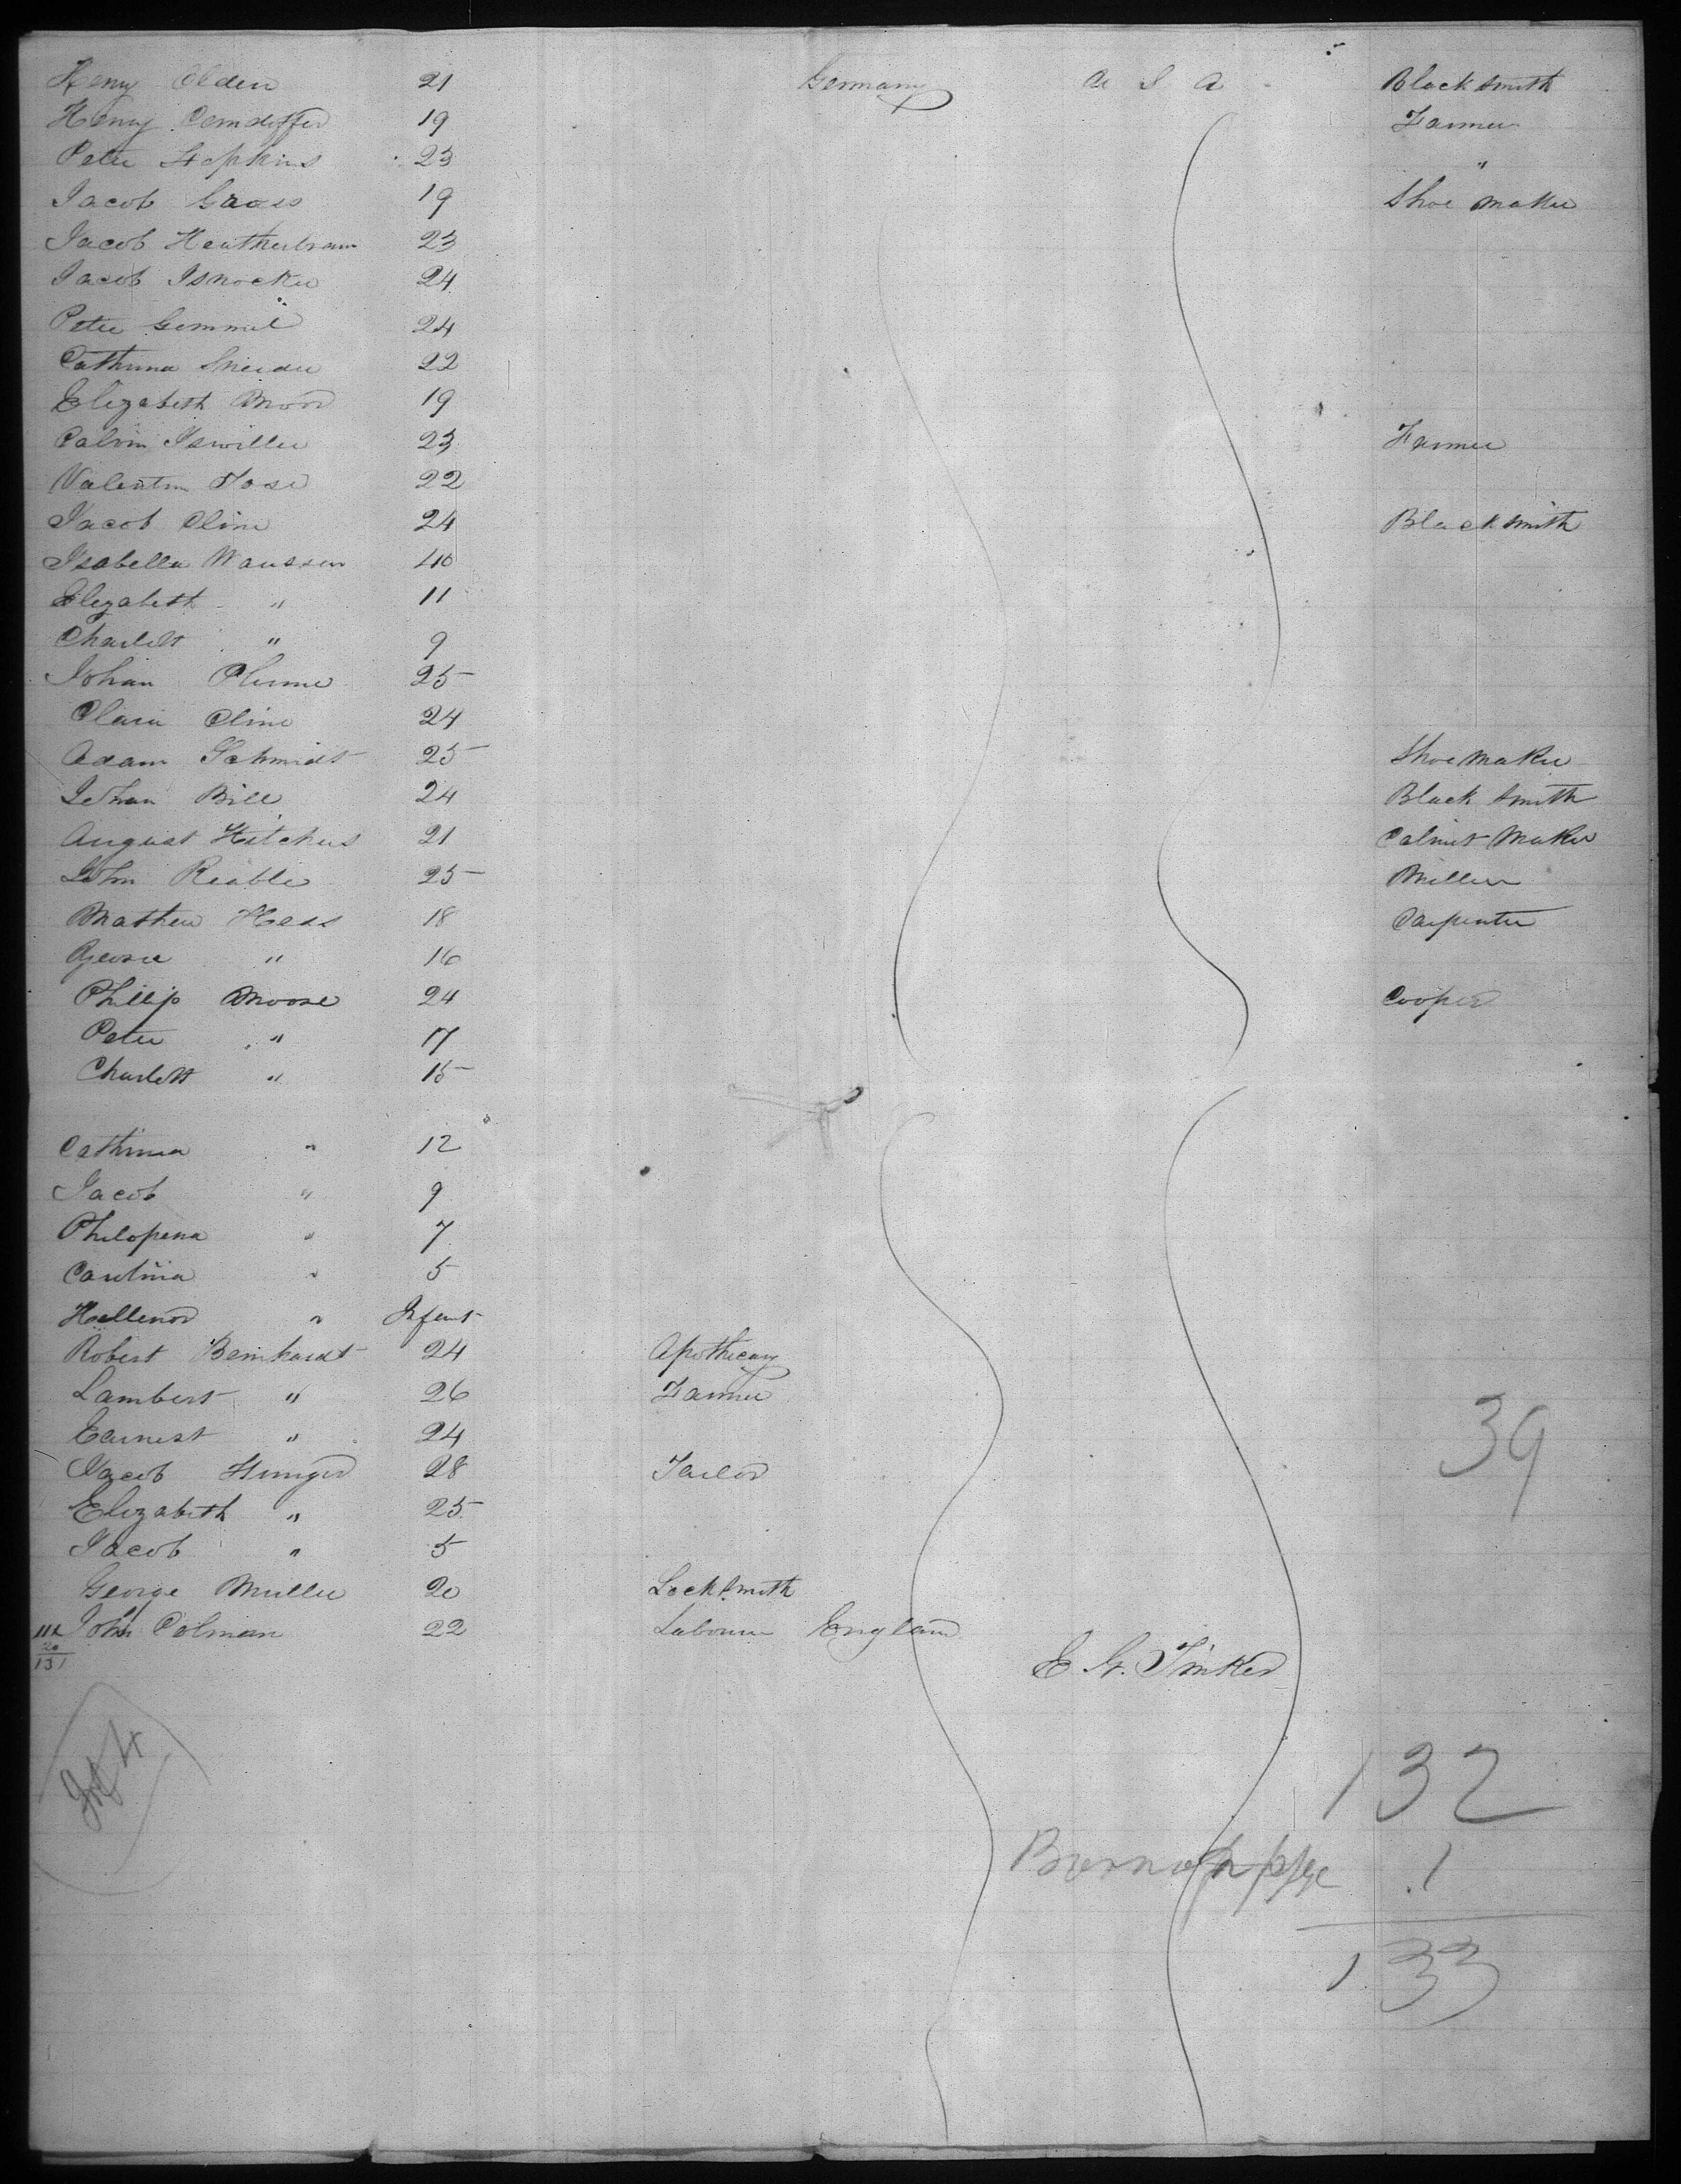 Henry Olden 21 Germany U S A Black smith
Henry 19 Farmer
Peter Hopkins 23 "
Jacob 19 Shoe maker
Jacob 23
Jacob 24
Peter Gemmil 24
Cathrina Sneider 22
Elizabeth Moor 19
Calvin 23 Farmer
Valentin 22
Jacob Cline 24 Black smith
Isabella 40
Elizabeth " 11
Charlott " 9
Johan 25
Clara Cline 24
Adam Schmidt 25 Shoe maker
Johan Bill 24 Black smith
August 21 Cabinet Maker
John 25 Miller
Mathew Hess 18 Carpenter
George " 16
Phillip Moore 24 Cooper
Peter " 17
Charlott " 15
Cathrina " 12
Jacob " 9
Philopena " 7
" 5
Hellenor " Infant
Robert Bernhardt 24 Apothecary
Lambert " 26 Farmer
Earnest " 24
Jacob Hunger 28 Tailor
39
Elizabeth " 25
Jacob " 5
George Muller 20 Locksmith
John Colman 22 Labourer England
131
E. G. Tinker
132
Born on psge 1
133